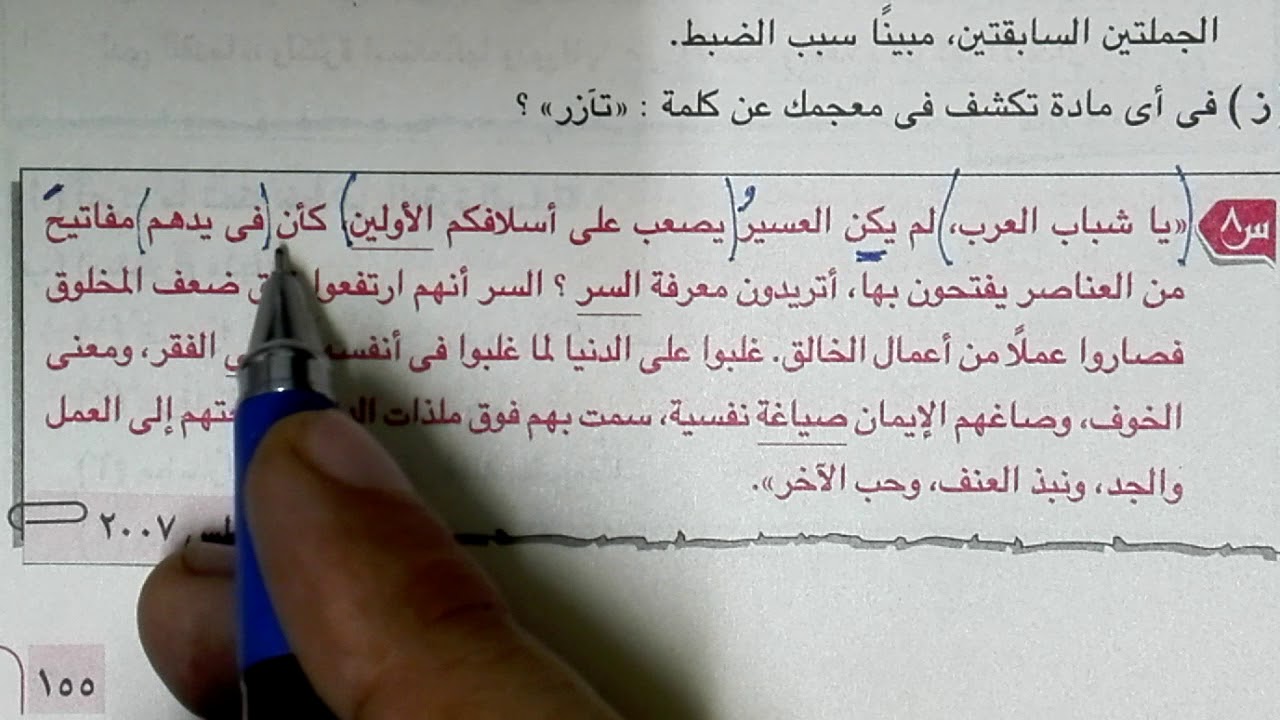 الجملتين السابقتين، مبينًا سبب الضبط.
ز) فى أى مادة تكشف فى معجمك عن كلمة : «تآزر» ؟
س٨ «يا شباب العرب، لم يكن العسير يصعب على أسلافكم الأولين كأن فى يدهم مفاتيح
من العناصر يفتحون بها، أتريدون معرفة السر ؟ السر أنهم ارتفعوا ضعف المخلوق
فصاروا عملاً من أعمال الخالق. غلبوا على الدنيا لما غلبوا فى الفقر، ومعنى
الخوف، وصاغهم الإيمان صياغة نفسية، سمت بهم فوق ملذات إلى العمل
والجد، ونبذ العنف، وحب الآخر».
٢٠٠٧
١٥٥